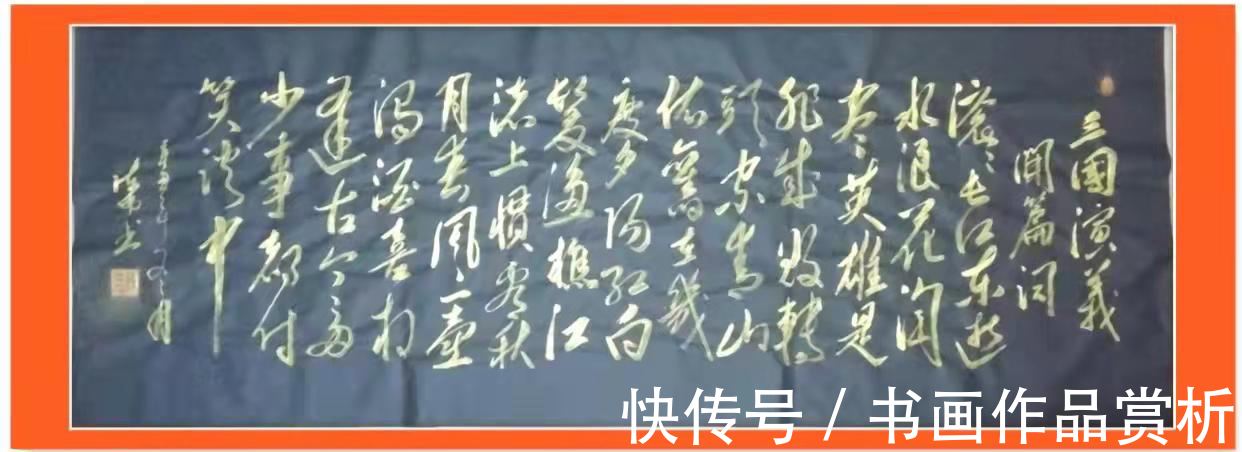 三國演義
開篇词
滚滚长江東逝
水浪花淘
尽英雄是
非成败轉
頭空青山
依舊在幾
度夕阳红白
髮渔樵江
渚上惯看秋
月春风一壶
浊酒喜相
逢古今多
少事都付
笑谈中
月
书
快传号 / 书画作品赏析